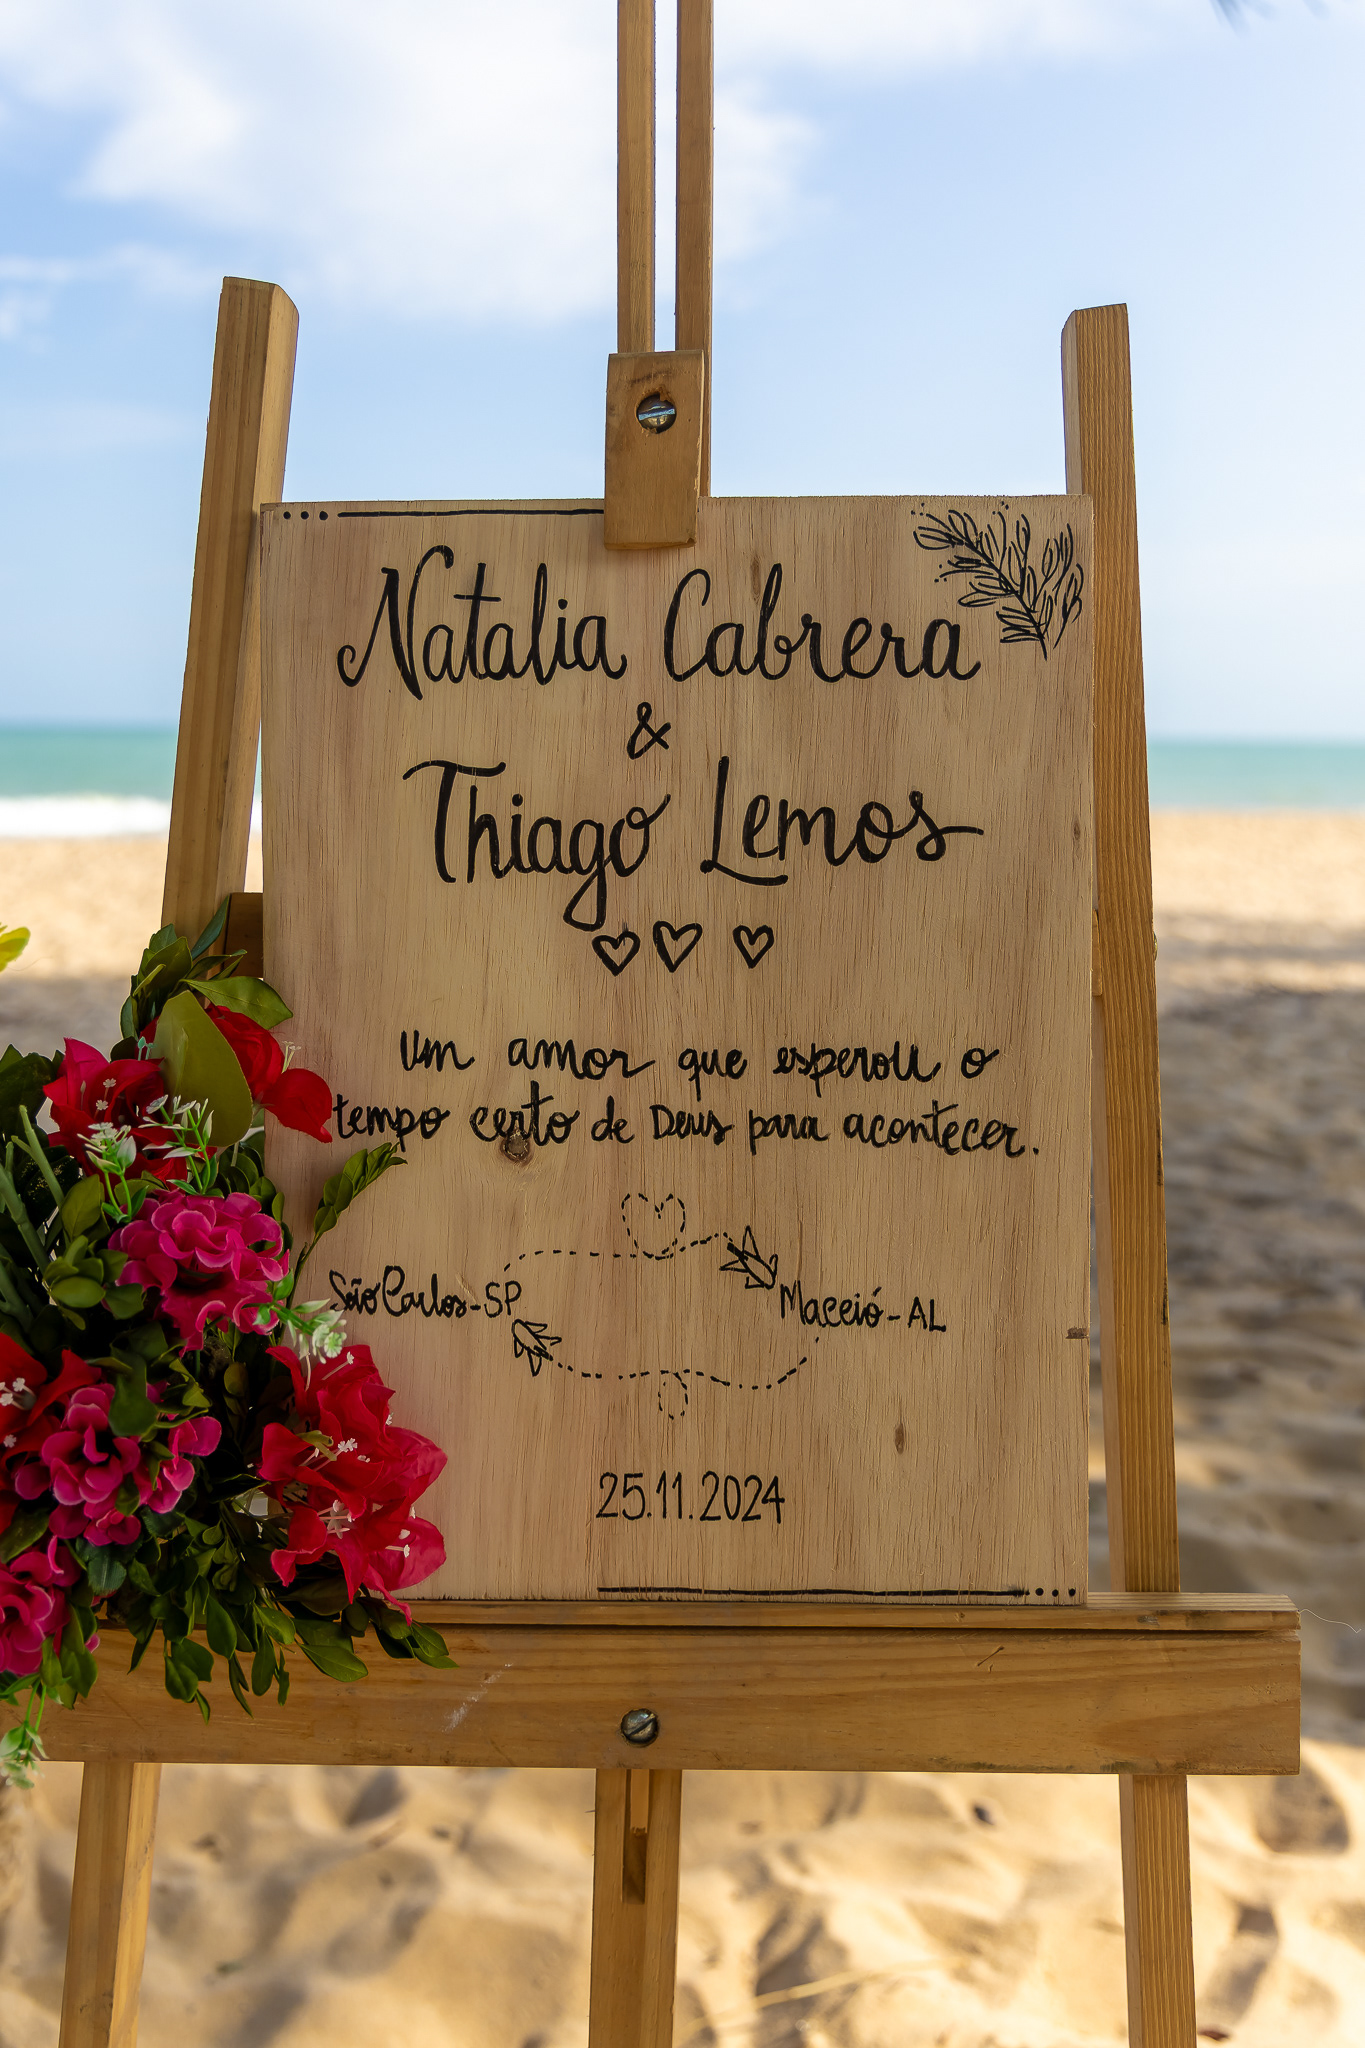 Natalia Cabrera
&
Thiago Lemos
Um amor que esperou o
tempo certo de Deus para acontecer.
São Carlos-SP
Maceió-AL
25.11.2024